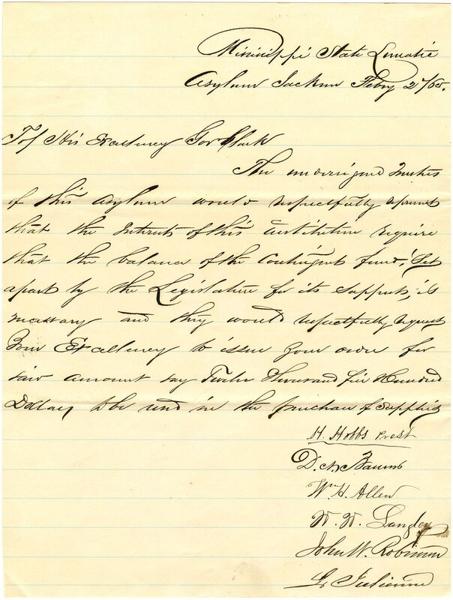 Mississippi State Lunatic
Asylum Jackson Feby 2/65.
To/ His Excellency Gov Clark
The undersigned Trustees
of this Asylum would respectfully represent
that the Interests of this Institution require
that the balance of the Contingent fund, Set
apart by the Legislature for its support, is
necessary and they would respectfully request
Your Excellency to issue your order for
said amount say Twelve Thousand five Hundred
Dollars, to be used in the purchase of supplies
H. Hobbs Prest
Wm H. Allen
Langley
John W. Robinson
Julienne